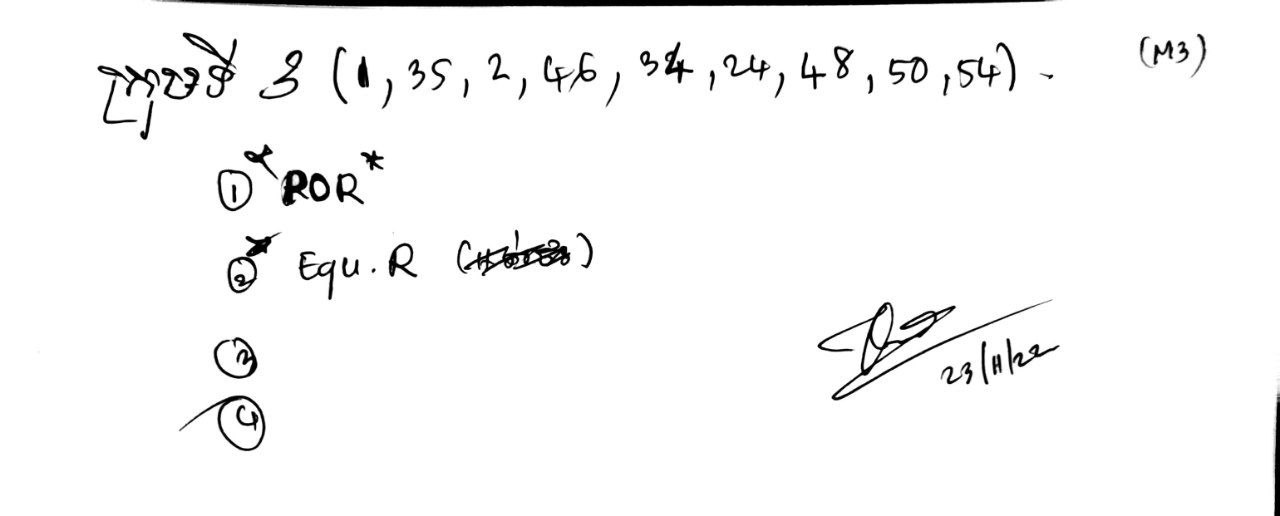 ក្រុមទី 3 (1, 35, 2, 46, 34, 24, 48, 50, 54). (M3)
① * ROR *
② * Equ. R
③
④
23/11/22